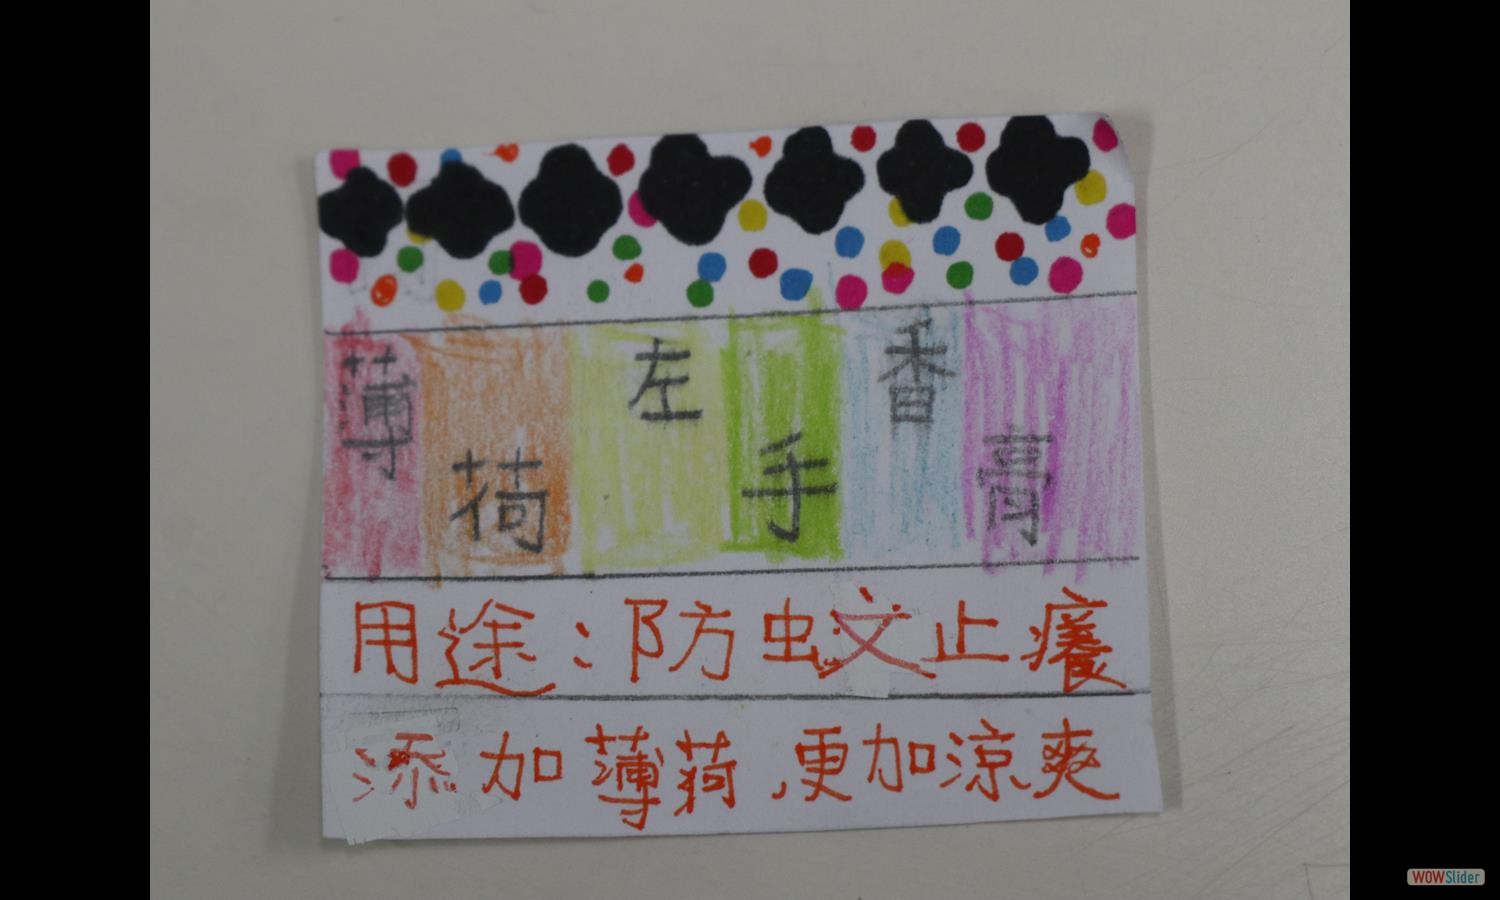 薄荷左手香膏
用途：防蚊止癢
添加薄荷，更加涼爽
WOWSlider